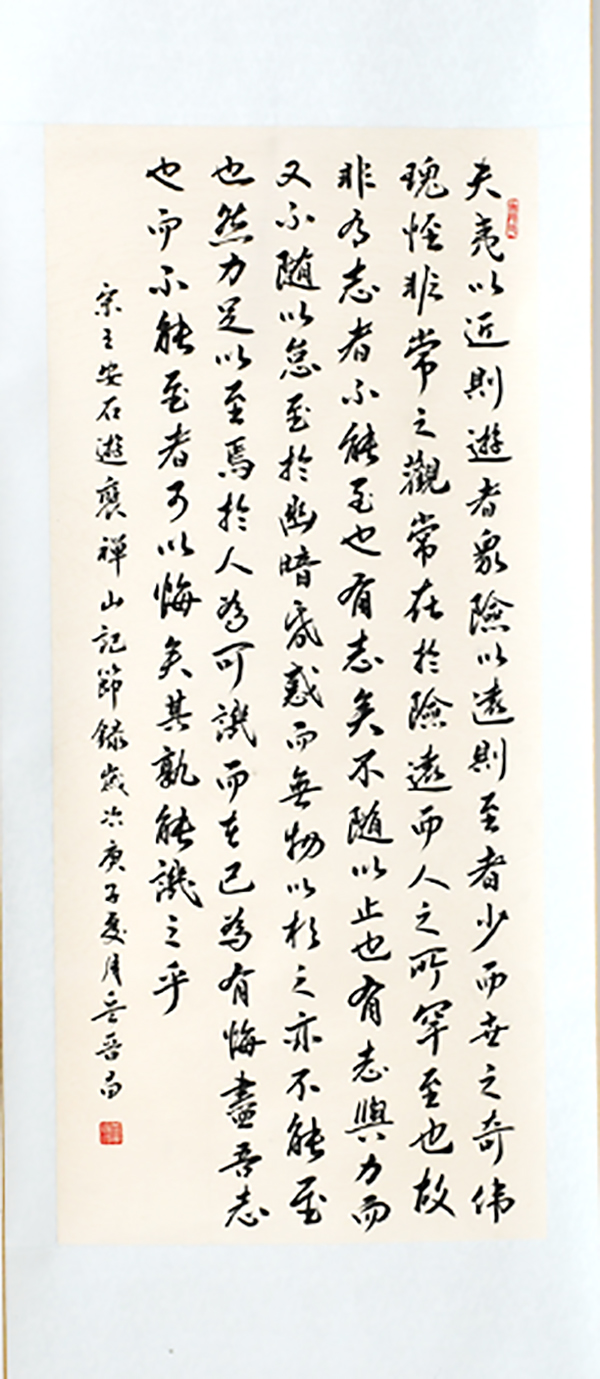 夫夷以近則遊者眾險以遠則至者少而世之奇偉
瑰怪非常之觀常在於險遠而人之所罕至也故
非有志者不能至也有志矣不隨以止也有志與力而
又不隨以怠至於幽暗昏惑而無物以相之亦不能至
也然力足以至焉於人為可譏而在己為有悔盡吾志
也而不能至者可以悔矣其孰能譏之乎
宋王安石遊褒禪山記節錄歲次庚子夏月